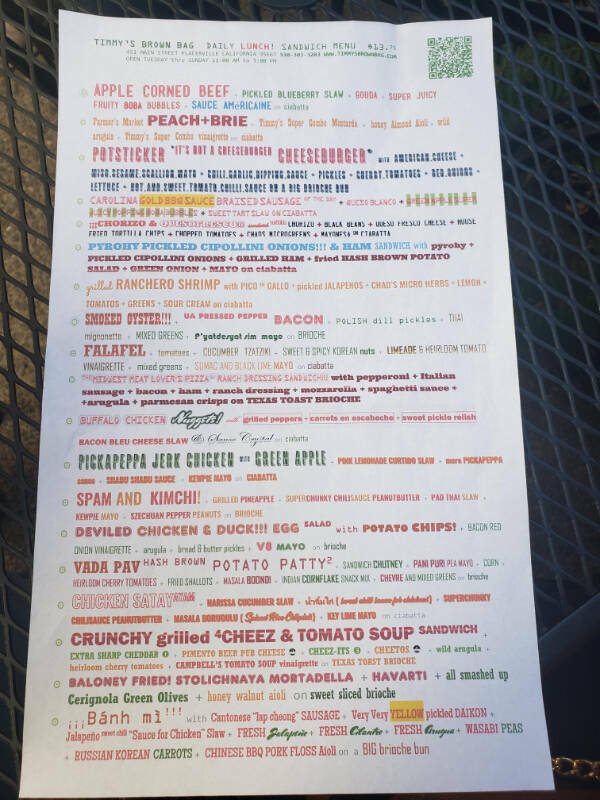 TIMMY'S BROWN BAG DAILY LUNCH! SANDWICH MENU $13.75
451 MAIN STREET PLACERVILLE CALIFORNIA 95667 530-303-3203 WWW.TIMMYSBROWNBAG.COM
OPEN TUESDAY thru SUNDAY 11:00 AM to 3:00 PM
APPLE CORNED BEEF + PICKLED BLUEBERRY SLAW + GOUDA + SUPER JUICY
FRUITY BOBA BUBBLES + SAUCE AMéRICAINE on ciabatta
Farmer's Market PEACH+BRIE + Timmy's Super Combo Mustards + honey Almond Aioli + wild
arugula + Timmy's Super Combo vinaigrette on ciabatta
POTSTICKER "IT'S NOT A CHEESEBURGER CHEESEBURGER" WITH AMERICAN.CHEESE +
MISO.SESAME.SCALLION.MAYO + CHILI.GARLIC.DIPPING.SAUCE + PICKLES + CHERRY.TOMATOES + RED.ONIONS +
LETTUCE + HOT.AND.SWEET.TOMATO.CHILLI.SAUCE ON A BIG BRIOCHE BUN
CAROLINA GOLD BBQ SAUCE BRAISED SAUSAGE OF THE DAY + QUESO BLANCO +
+ SWEET TART SLAW ON CIABATTA
¡¡¡CHORIZO & QUESOFRESCO!!! CHORIZO + BLACK BEANS + QUESO FRESCO CHEESE + HOUSE
FRIED TORTILLA CHIPS + CHOPPED TOMATOES + CHADS MICROGREENS + MAYONESA ON CIABATTA
PYROHY PICKLED CIPOLLINI ONIONS!!! & HAM SANDWICH with pyrohy +
PICKLED CIPOLLINI ONIONS + GRILLED HAM + fried HASH BROWN POTATO
SALAD + GREEN ONION + MAYO on ciabatta
grilled RANCHERO SHRIMP with PICO de GALLO + pickled JALAPENOS + CHAD'S MICRO HERBS + LEMON +
TOMATOS + GREENS + SOUR CREAM on ciabatta
SMOKED OYSTER!!! + UA PRESSED PEPPER BACON + POLISH dill pickles + THAI
mignonette + MIXED GREENS + F'yatdesyat sim mayo on BRIOCHE
FALAFEL + tomatoes + CUCUMBER TZATZIKI + SWEET & SPICY KOREAN nuts + LIMEADE & HEIRLOOM TOMATO
VINAIGRETTE + mixed greens + SUMAC AND BLACK LIME MAYO on ciabatta
THE MIDWEST MEAT LOVER'S PIZZA & RANCH DRESSING SANDWICH with pepperoni + Italian
sausage + bacon + ham + ranch dressing + mozzarella + spaghetti sauce +
+arugula + parmesan crisps on TEXAS TOAST BRIOCHE
BUFFALO CHICKEN Nuggets! with grilled peppers + carrots en escabeche + sweet pickle relish
BACON BLEU CHEESE SLAW & Sauce Crystal on ciabatta
PICKAPEPPA JERK CHICKEN WITH GREEN APPLE + PINK LEMONADE CURTIDO SLAW + more PICKAPEPPA
sauce + SHABU SHABU SAUCE + KEWPIE MAYO on CIABATTA
SPAM AND KIMCHI! + GRILLED PINEAPPLE + SUPERCHUNKY CHILISAUCE PEANUTBUTTER + PAD THAI SLAW +
KEWPIE MAYO + SZECHUAN PEPPER PEANUTS on BRIOCHE
DEVILED CHICKEN & DUCK!!! EGG SALAD with POTATO CHIPS! + BACON RED
ONION VINAIGRETTE + arugula + bread & butter pickles + V8 MAYO on brioche
VADA PAV HASH BROWN POTATO PATTY² + SANDWICH CHUTNEY + PANI PURI PEA MAYO + CORN +
HEIRLOOM CHERRY TOMATOES + FRIED SHALLOTS + MASALA BOONDI + INDIAN CORNFLAKE SNACK MIX + CHEVRE AND MIXED GREENS on brioche
CHICKEN SATAY + HARISSA CUCUMBER SLAW + น้ำจิ้มไก่ ( sweet chili sauce for chicken) + SUPERCHUNKY
CHILISAUCE PEANUTBUTTER + MASALA BORUGULU ( Spiced Rice Chitpals) + KEY LIME MAYO on ciabatta
CRUNCHY grilled ⁴CHEEZ & TOMATO SOUP SANDWICH +
EXTRA SHARP CHEDDAR + PIMENTO BEER PUB CHEESE + CHEEZ-ITS + CHEETOS + wild arugula +
heirloom cherry tomatoes + CAMPBELL'S TOMATO SOUP vinaigrette on TEXAS TOAST BRIOCHE
BALONEY FRIED! STOLICHNAYA MORTADELLA + HAVARTI + all smashed up
Cerignola Green Olives + honey walnut aioli on sweet sliced brioche
¡¡¡Bánh mì!!! with Cantonese "lap cheong" SAUSAGE + Very Very YELLOW pickled DAIKON +
Jalapeño sweet chili "Sauce for Chicken" Slaw + FRESH Jalapeño + FRESH Cilantro + FRESH Arugua + WASABI PEAS
+ RUSSIAN KOREAN CARROTS + CHINESE BBQ PORK FLOSS Aioli on a BIG brioche bun